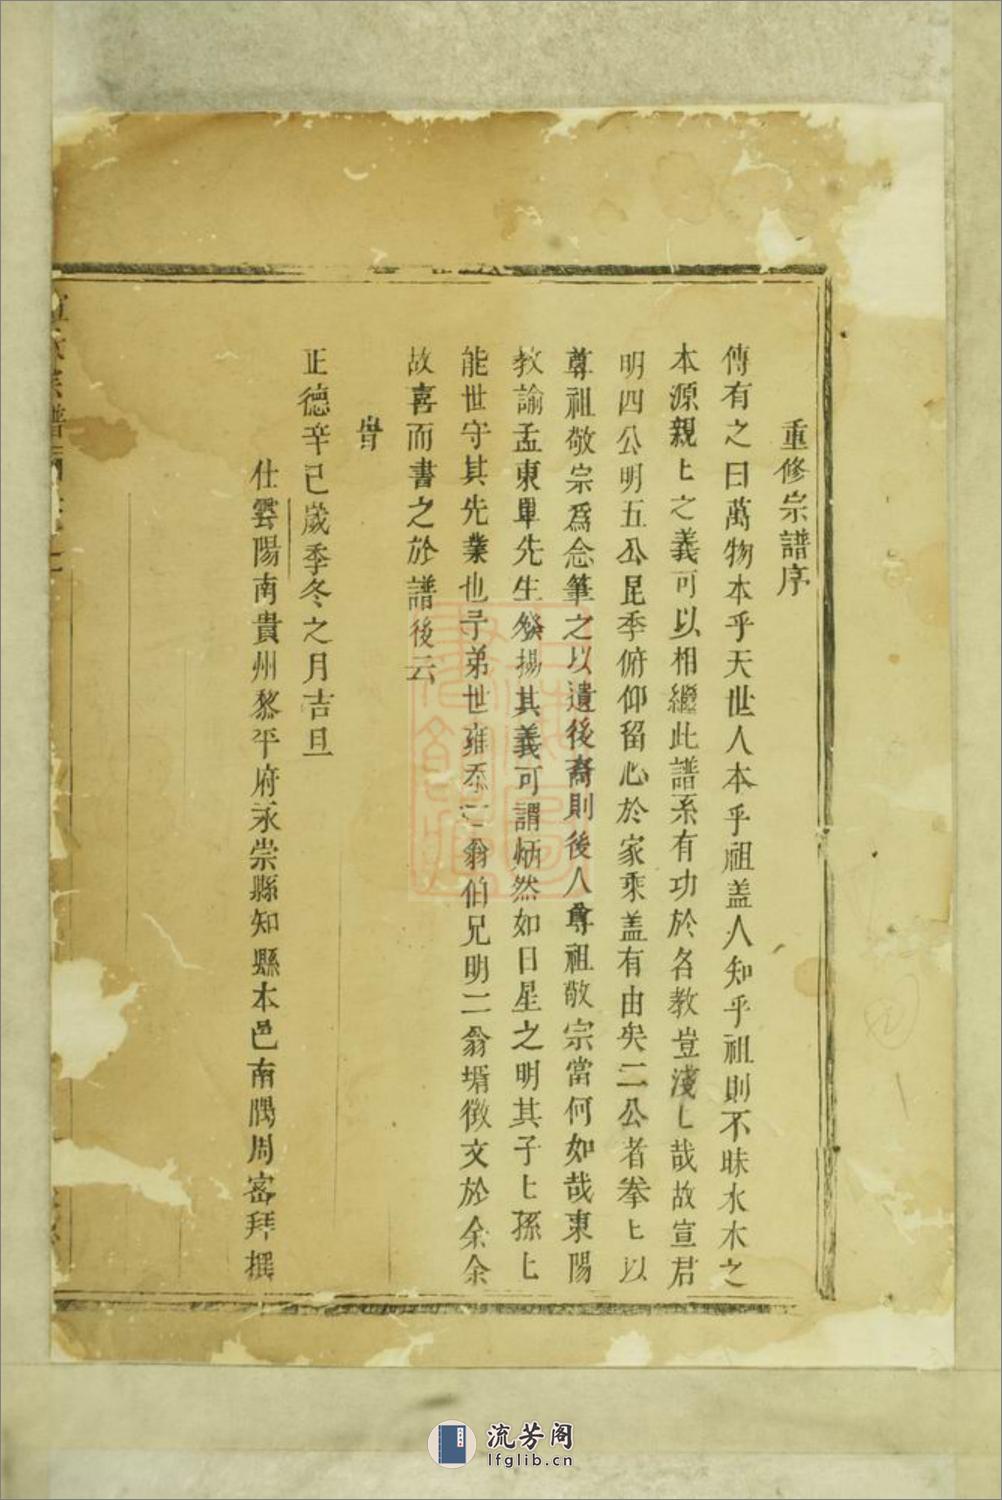 重修宗譜序
傳有之曰萬物本乎天世人本乎祖盖人知乎祖則不昧水木之
本源親匕之義可以相繼此譜系有功於名教豈淺匕哉故宣君
明四公明五公昆季俯仰留心於家乘盖有由矣二公者拳匕以
尊祖敬宗爲念筆之以遺後裔則後人尊祖敬宗當何如哉東陽
教諭孟東單先生發揚其義可謂炳然如日星之明其子匕孫匕
能世守其先業也予弟世雍忝二翁伯兄明二翁壻徵文於余余
故喜而書之於譜後云
旹
正德辛巳歲季冬之月吉旦
仕雲陽南貴州黎平府永崇縣知縣本邑南隅周密拜撰
宗譜
流芳阁
lfglib.cn